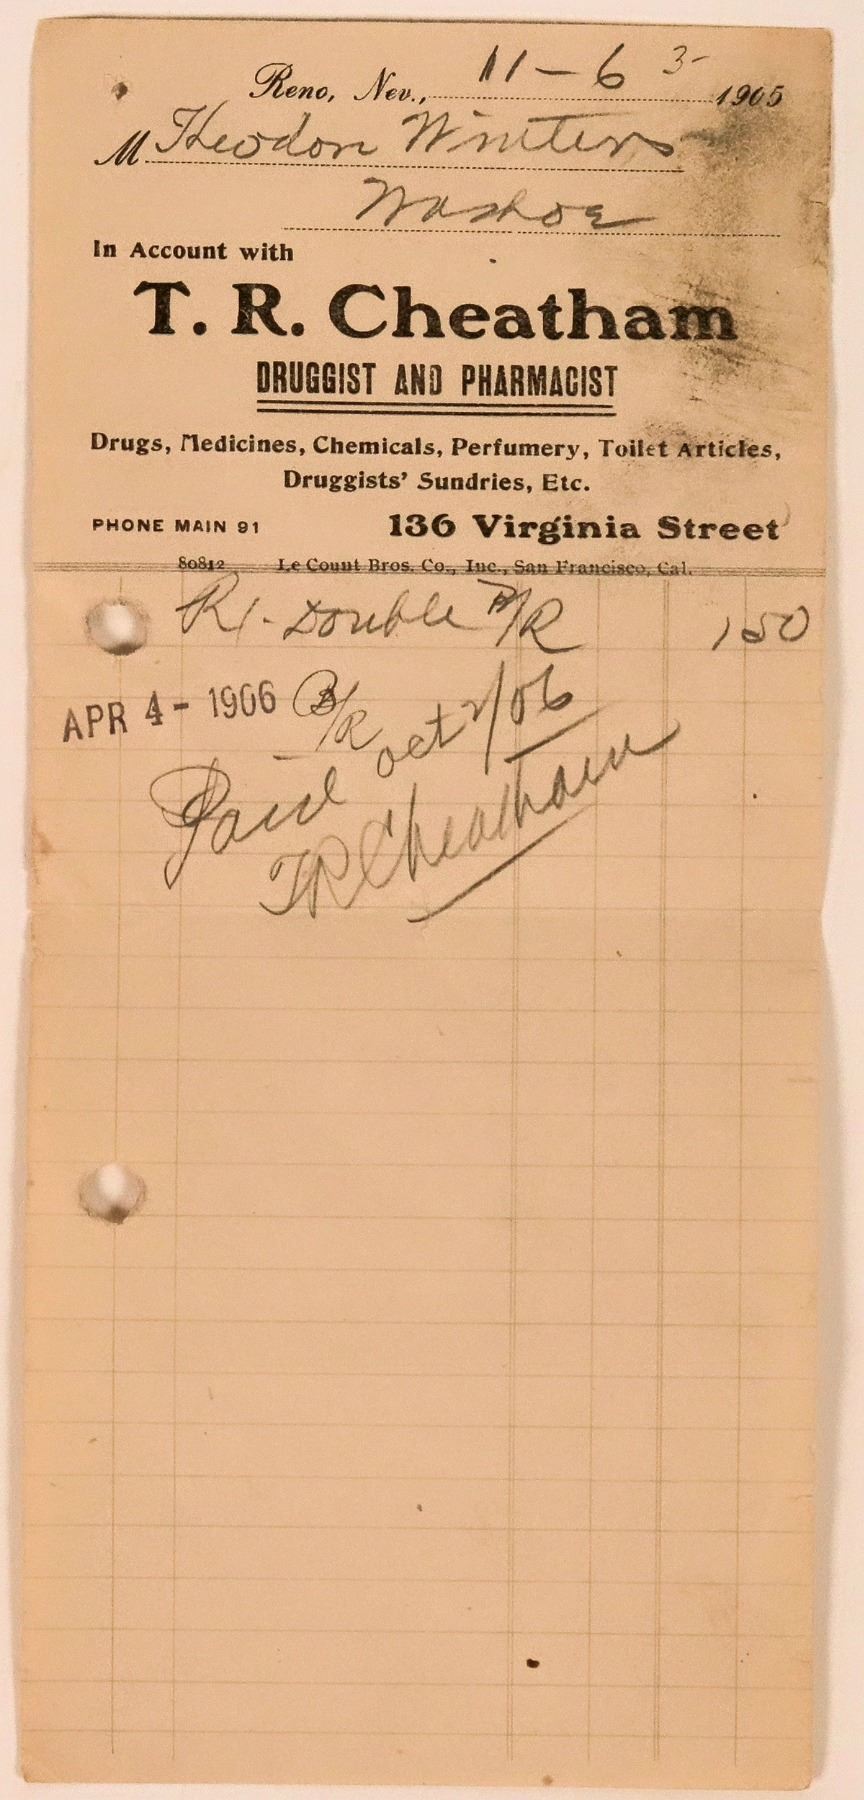 Reno, Nev., 11-6 3- 1905
M Theodore Winters
Washoe
In Account with
T. R. Cheatham
DRUGGIST AND PHARMACIST
Drugs, Medicines, Chemicals, Perfumery, Toilet Articles,
Druggists' Sundries, Etc.
PHONE MAIN 91 136 Virginia Street
80812 Le Count Bros. Co., Inc., San Francisco, Cal.
Rx. Double 150
APR 4- 1906 B/R
Paid Oct 2/06
TR Cheatham